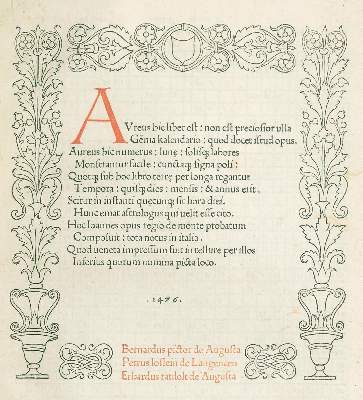 AVreus hic liber est: non est preciosior ulla
Gēma kalendario: quod docet istud opus.
Aureus hic numerus: lune: solisq; labores
Monstrantur facile: cunctaq; signa poli:
Quotq; sub hoc libro terre per longa regantur
Tempora: quisq; dies: mensis: & annus erit.
Scitur in instanti quecunq; sit hora diei.
Hunc emat astrologus qui velit esse cito.
Hoc Ioannes opus regio de monte probatum
Composuit: tota notus in italia.
Quod veneta impressum fuit in tellure per illos
Inferius quorum nomina picta loco.
.1476.
Bernardus pictor de Augusta
Petrus loslein de Langencen
Erhardus ratdolt de Augusta